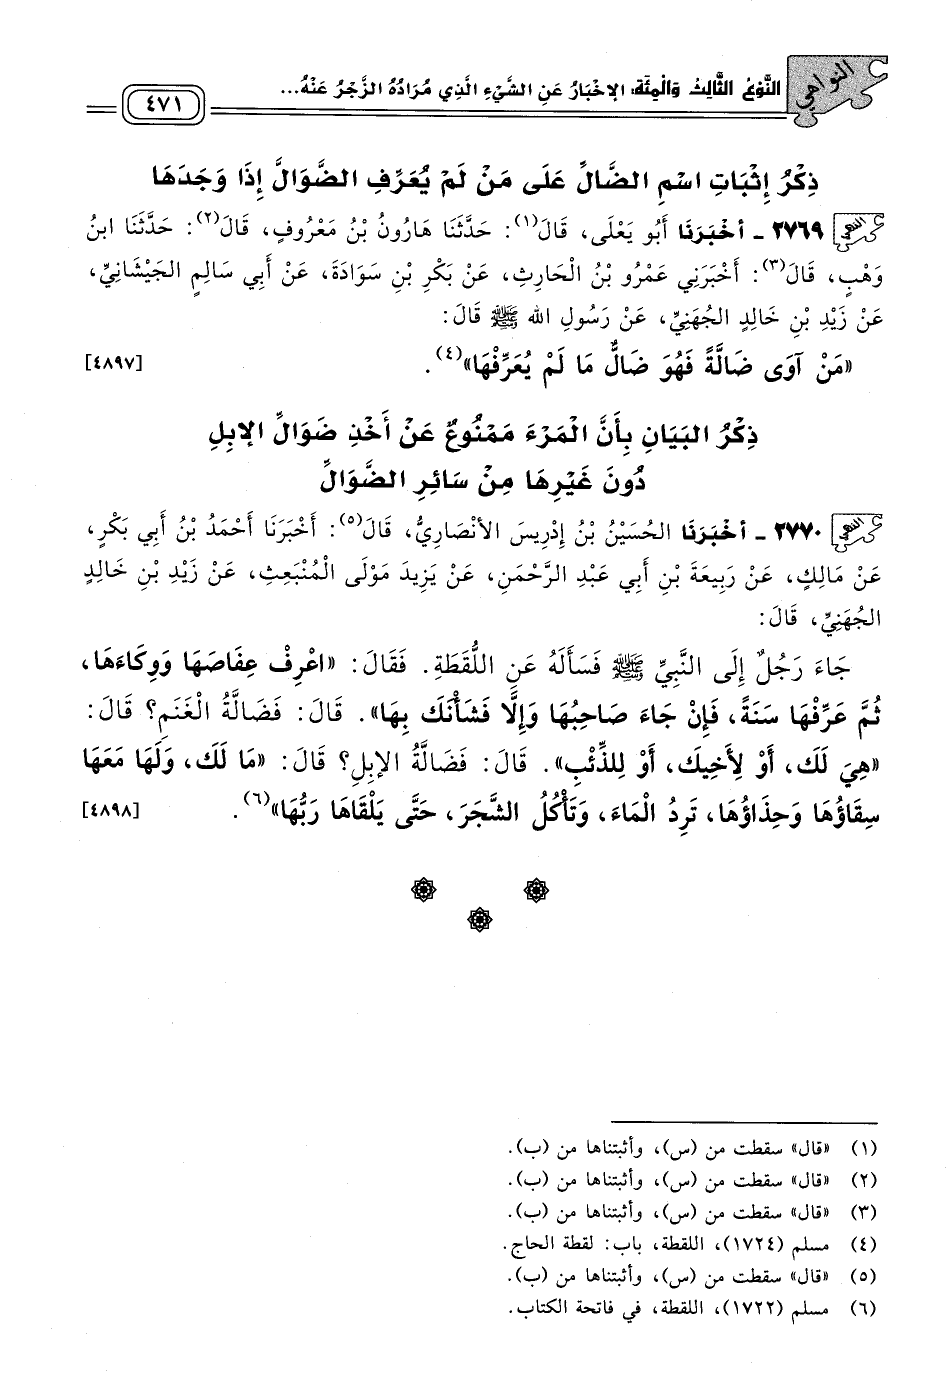 النواهي
النَّوْعُ الثَّالِثُ وَالْمِئَة: الإخْبَارُ عَنِ الشَّيْءِ الَّذِي مُرَادُهُ الزَّجْرُ عَنْهُ...
٤٧١
ذِكْرُ إِثْبَاتِ اسْمِ الضَّالِّ عَلَى مَنْ لَمْ يُعَرِّفِ الضَّوَالَّ إِذَا وَجَدَهَا
النهي ٢٧٦٩ - أَخْبَرَنَا أَبُو يَعْلَى، قَالَ(١): حَدَّثَنَا هَارُونُ بْنُ مَعْرُوفٍ، قَالَ(٢): حَدَّثَنَا ابنُ
وَهْبٍ، قَالَ(٣): أَخْبَرَنِي عَمْرُو بْنُ الْحَارِثِ، عَنْ بَكْرِ بْنِ سَوَادَةَ، عَنْ أَبِي سَالِمٍ الجَيْشَانِيِّ،
عَنْ زَيْدِ بْنِ خَالِدٍ الجُهَنِيِّ، عَنْ رَسُولِ الله ﷺ قَالَ:
«مَنْ آوَى ضَالَّةً فَهُوَ ضَالٌّ مَا لَمْ يُعَرِّفْهَا»(٤). [٤٨٩٧]
ذِكْرُ البَيَانِ بِأَنَّ الْمَرْءَ مَمْنُوعٌ عَنْ أَخْذِ ضَوَالِّ الإِبِلِ
دُونَ غَيْرِهَا مِنْ سَائِرِ الضَّوَالِّ
النهي ٢٧٧٠ - أَخْبَرَنَا الحُسَيْنُ بْنُ إِدْرِيسَ الأَنْصَارِيُّ، قَالَ(٥): أَخْبَرَنَا أَحْمَدُ بْنُ أَبِي بَكْرٍ،
عَنْ مَالِكٍ، عَنْ رَبِيعَةَ بْنِ أَبِي عَبْدِ الرَّحْمَنِ، عَنْ يَزِيدَ مَوْلَى الْمُنْبَعِثِ، عَنْ زَيْدِ بْنِ خَالِدٍ
الجُهَنِيِّ، قَالَ:
جَاءَ رَجُلٌ إِلَى النَّبِيِّ ﷺ فَسَأَلَهُ عَنِ اللُّقَطَةِ. فَقَالَ: «اعْرِفْ عِفَاصَهَا وَوِكَاءَهَا،
ثُمَّ عَرِّفْهَا سَنَةً، فَإِنْ جَاءَ صَاحِبُهَا وَإِلَّا فَشَأْنَكَ بِهَا». قَالَ: فَضَالَّةُ الْغَنَمِ؟ قَالَ:
«هِيَ لَكَ، أَوْ لِأَخِيكَ، أَوْ لِلذِّئْبِ». قَالَ: فَضَالَّةُ الإِبِلِ؟ قَالَ: «مَا لَكَ، وَلَهَا مَعَهَا
سِقَاؤُهَا وَحِذَاؤُهَا، تَرِدُ الْمَاءَ، وَتَأْكُلُ الشَّجَرَ، حَتَّى يَلْقَاهَا رَبُّهَا»(٦). [٤٨٩٨]
(١) «قال» سقطت من (س)، وأثبتناها من (ب).
(٢) «قال» سقطت من (س)، وأثبتناها من (ب).
(٣) «قال» سقطت من (س)، وأثبتناها من (ب).
(٤) مسلم (١٧٢٤)، اللقطة، باب: لقطة الحاج.
(٥) «قال» سقطت من (س)، وأثبتناها من (ب).
(٦) مسلم (١٧٢٢)، اللقطة، في فاتحة الكتاب.